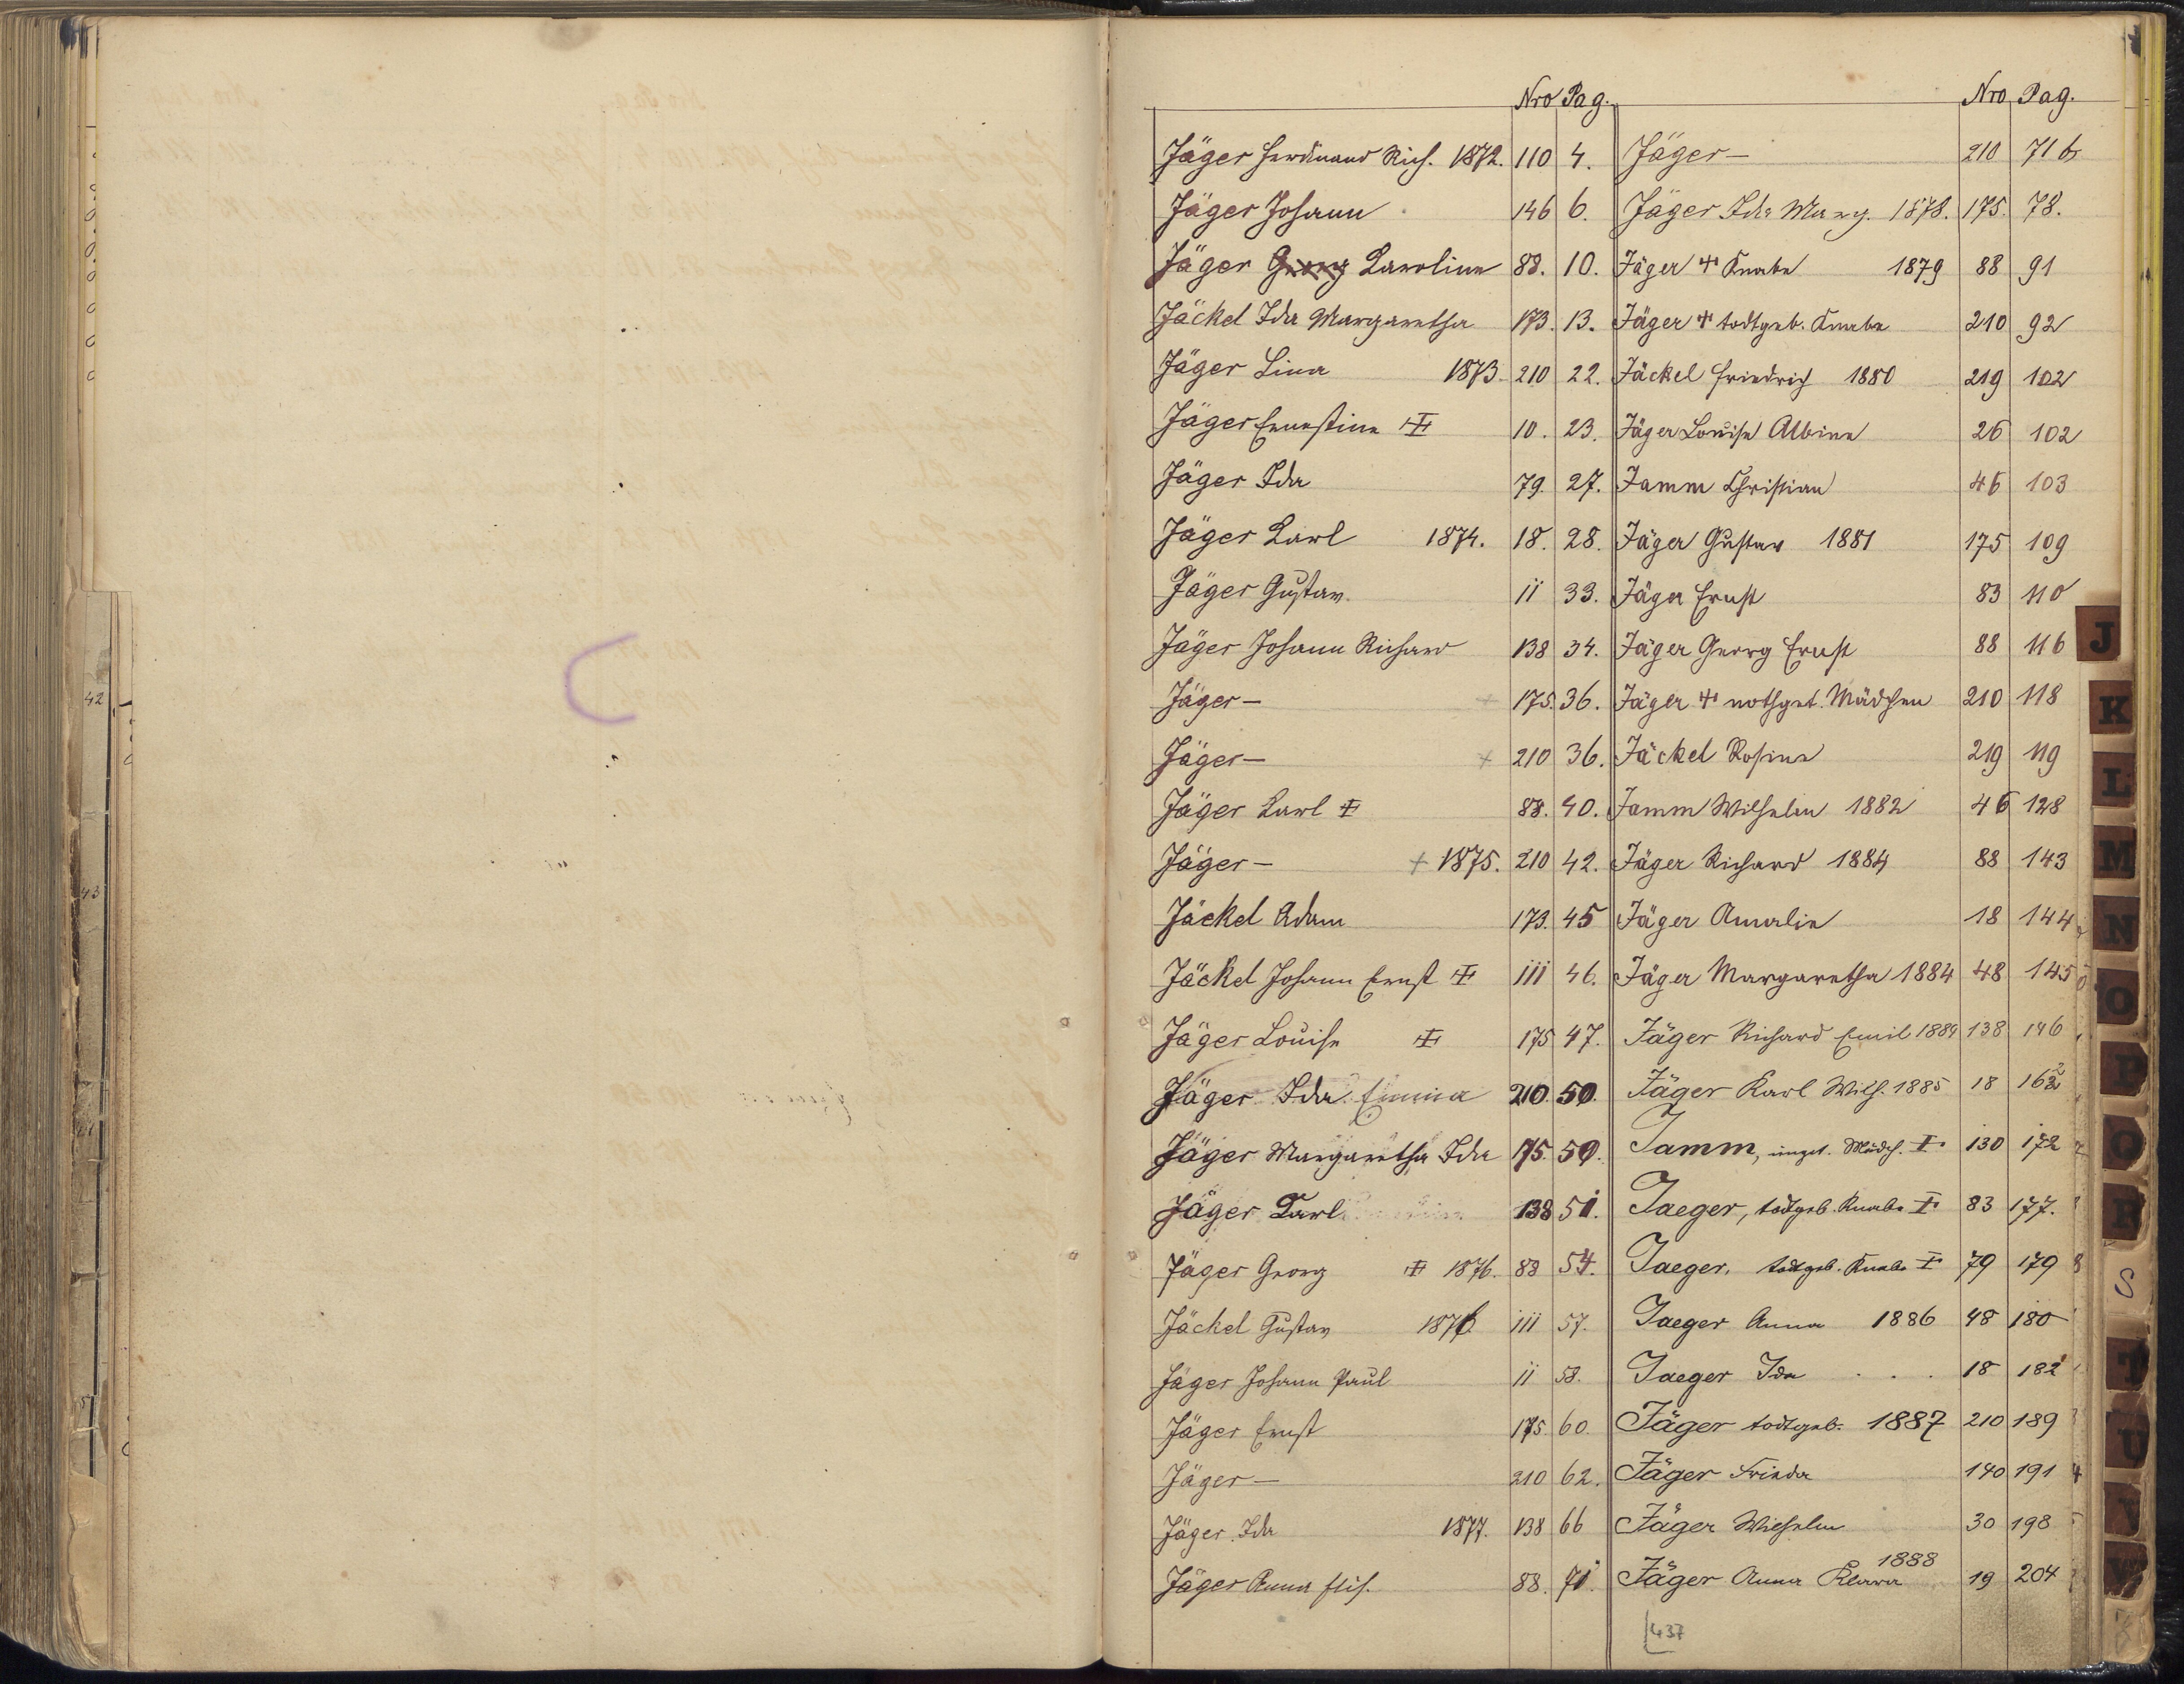 Nro Pag.
Jäger Ferdinand Rich. 1872. 110 4.
Jäger Johann 146 6.
Jäger Georg Karoline 88. 10.
Jäckel Ida Margaretha 173. 13.
Jäger Lina 1873. 210 22.
Jäger Ernestine ‡ 10. 23.
Jäger Ida 79. 27.
Jäger Karl 1874. 18. 28.
Jäger Gustav. 11 33.
Jäger Johann Richard 138 34.
Jäger — + 175. 36.
Jäger — + 210 36.
Jäger Karl ‡ 88. 40.
Jäger — + 1875. 210 42.
Jäckel Adam 173. 45
Jäckel Johann Ernst ‡ 111 46.
Jäger Louise ‡ 175 47.
Jäger Ida Emma 210. 50.
Jäger Margaretha Ida 175. 50.
Jäger Karl 138 51.
Jäger Georg ‡ 1876. 88 54.
Jäckel Gustav 1876 111 57.
Jäger Johann Paul 11 58.
Jäger Ernst 175. 60.
Jäger — 210 62.
Jäger Ida 1877. 138 66
Jäger Anna Elis. 88. 71.
Nro Pag.
Jäger — 210 71 b
Jäger Ida Marg. 1878. 175. 78.
Jäger ‡ Knabe 1879 88 91
Jäger ‡ todtgeb. Knabe 210 92
Jäckel Friedrich 1880 219 102
Jäger Louise Albine 26 102
Jamm Christian 46 103
Jäger Gustav 1881 175 109
Jäger Ernst 83 110
Jäger Georg Ernst 88 116
Jäger ‡ nothget. Mädchen 210 118
Jäckel Rosine 219 119
Jamm Wilhelm 1882 46 128
Jäger Richard 1884 88 143
Jäger Amalie 18 144
Jäger Margaretha 1884 48 145
Jäger Richard Emil 1884 138 146
Jäger Karl Wilh. 1885 18 162
Jamm, unget. Mädch. ‡ 130 172
Jaeger, todtgeb. Knabe ‡ 83 177.
Jaeger, todtgeb. Knabe ‡ 79 179
Jaeger Anna 1886 48 180
Jaeger Ida . . . 18 182
Jäger todtgeb. 1887 210 189
Jäger Frieda 140 191
Jäger Wilhelm 30 198
1888
Jäger Anna Klara 19 204
437
J
K
L
M
N
O
P
Q
R
S
T
U
V
W
42
43